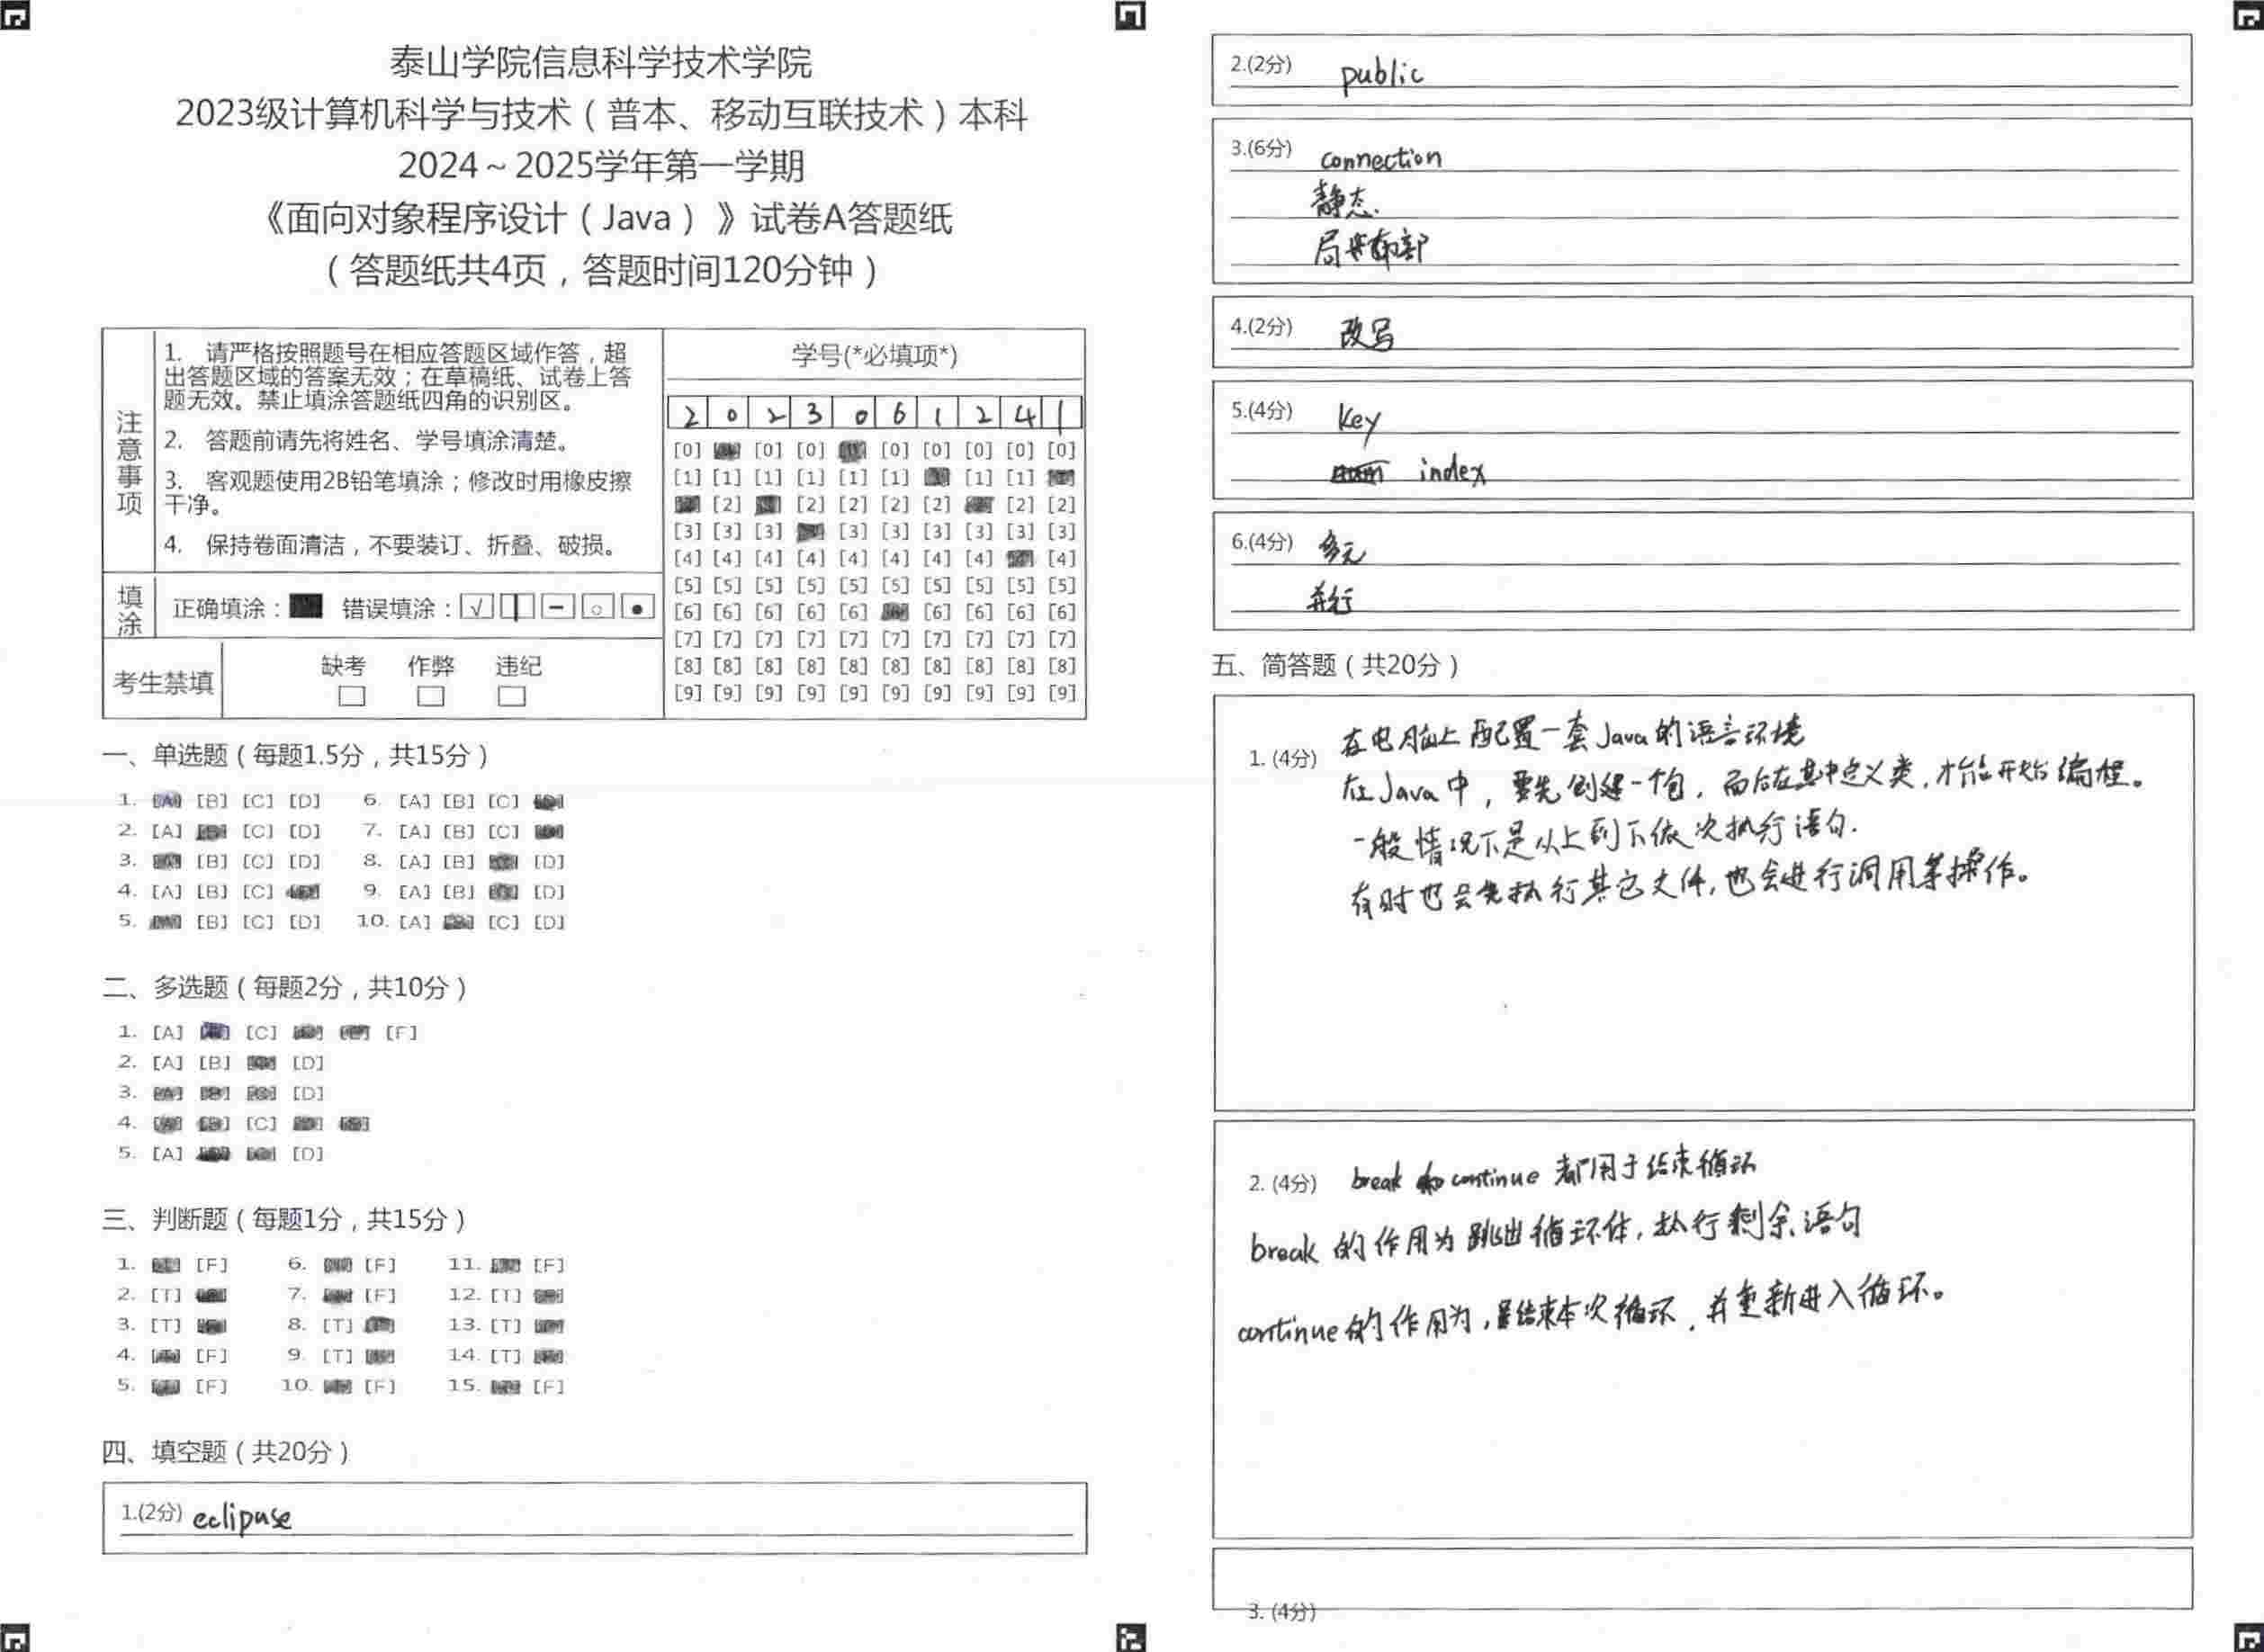 泰山学院信息科学技术学院
2023级计算机科学与技术（普本、移动互联技术）本科
2024～2025学年第一学期
《面向对象程序设计（Java）》试卷A答题纸
（答题纸共4页，答题时间120分钟）
注意事项
1. 请严格按照题号在相应答题区域作答，超
出答题区域的答案无效；在草稿纸、试卷上答
题无效。禁止填涂答题纸四角的识别区。
2. 答题前请先将姓名、学号填涂清楚。
3. 客观题使用2B铅笔填涂；修改时用橡皮擦
干净。
4. 保持卷面清洁，不要装订、折叠、破损。
填涂
正确填涂： 错误填涂：
考生禁填
缺考 作弊 违纪
学号(*必填项*)
2 0 2 3 0 6 1 2 4 1
[0] [0] [0] [0] [0] [0] [0] [0]
[1] [1] [1] [1] [1] [1] [1] [1]
[2] [2] [2] [2] [2] [2] [2]
[3] [3] [3] [3] [3] [3] [3] [3] [3]
[4] [4] [4] [4] [4] [4] [4] [4] [4]
[5] [5] [5] [5] [5] [5] [5] [5] [5] [5]
[6] [6] [6] [6] [6] [6] [6] [6] [6]
[7] [7] [7] [7] [7] [7] [7] [7] [7] [7]
[8] [8] [8] [8] [8] [8] [8] [8] [8] [8]
[9] [9] [9] [9] [9] [9] [9] [9] [9] [9]
一、单选题（每题1.5分，共15分）
1. [A] [B] [C] [D] 6. [A] [B] [C]
2. [A] [C] [D] 7. [A] [B] [C]
3. [B] [C] [D] 8. [A] [B] [D]
4. [A] [B] [C] 9. [A] [B] [D]
5. [B] [C] [D] 10. [A] [C] [D]
二、多选题（每题2分，共10分）
1. [A] [C] [F]
2. [A] [B] [D]
3. [D]
4. [C]
5. [A] [D]
三、判断题（每题1分，共15分）
1. [F] 6. [F] 11. [F]
2. [T] 7. [F] 12. [T]
3. [T] 8. [T] 13. [T]
4. [F] 9. [T] 14. [T]
5. [F] 10. [F] 15. [F]
四、填空题（共20分）
1.(2分) eclipuse
2.(2分) public
3.(6分) connection
静态.
局部
4.(2分) 改写
5.(4分) key
index
6.(4分) 多元
并行
五、简答题（共20分）
1. (4分) 在电脑上配置一套Java的语言环境
在Java中，要先创建一个包，而后在其中定义类，才能开始编程。
一般情况下是从上到下依次执行语句.
有时也会先执行其它文件,也会进行调用等操作。
2. (4分) break 和 continue 都用于结束循环
break 的作用为跳出循环体，执行剩余语句
continue的作用为，结束本次循环，并重新进入循环。
3. (4分)